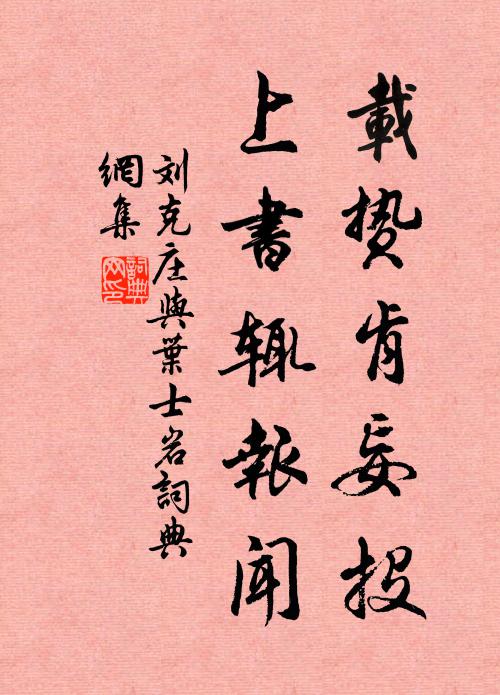 載贽肯妄投
上書辄報闻
刘克庄與葉士岩詞典
網集
詞典
网印